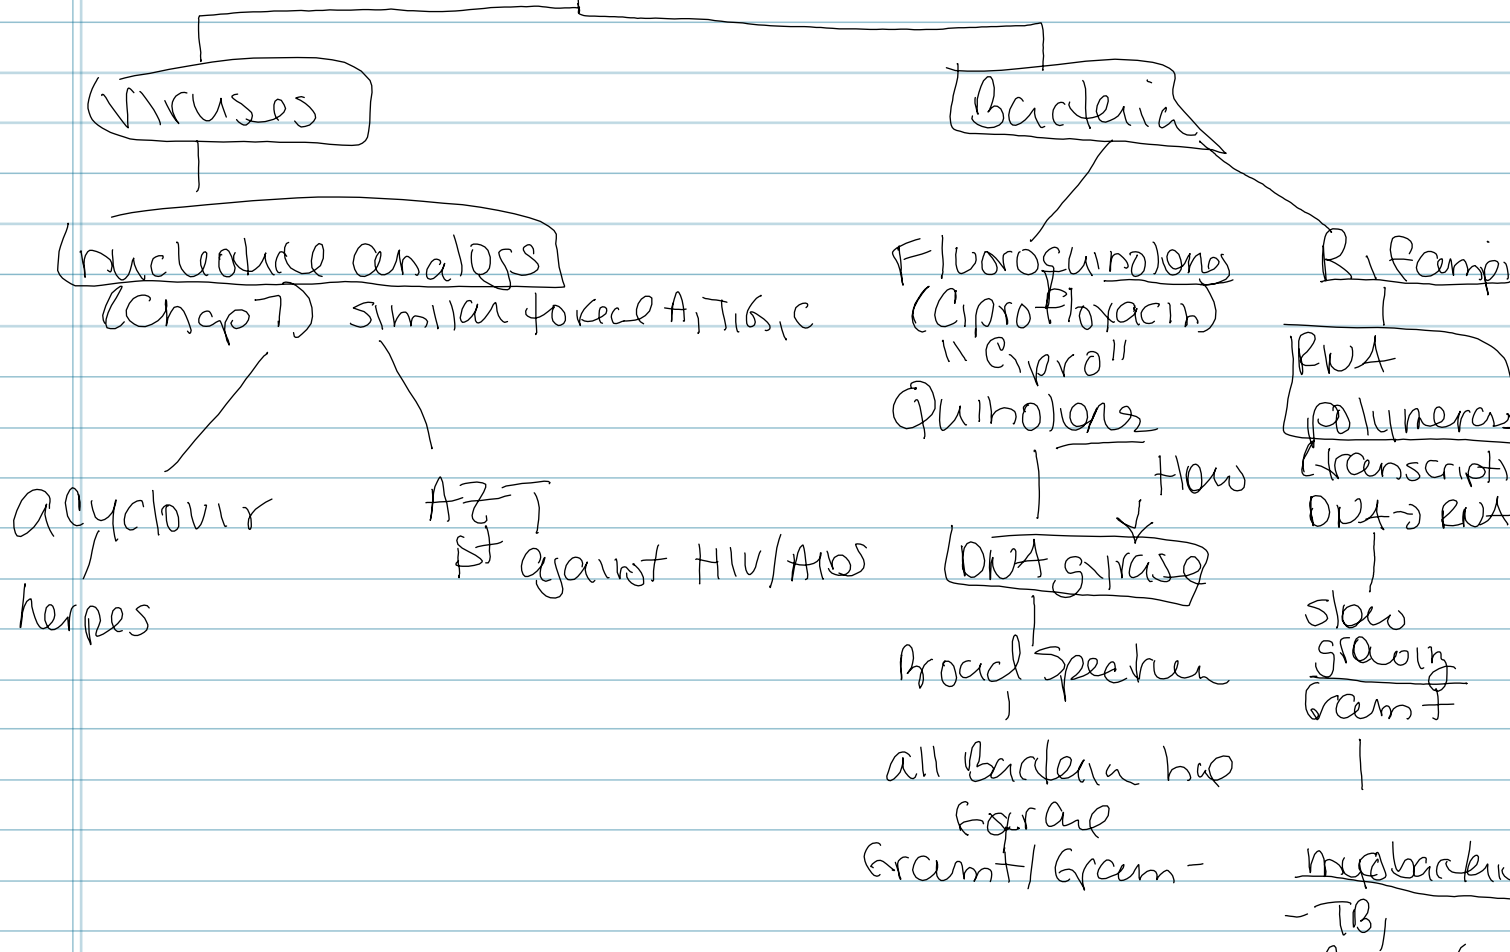 Viruses
nucleotide analogs
(Chap 7) similar to real A, T, G, C
acyclovir
herpes
AZT
1st against HIV/AIDS
Bacteria
Fluoroquinolones
(Ciprofloxacin)
"Cipro"
Quinolones
How
DNA gyrase
Broad Spectrum
all Bacteria have
Gram+/Gram-
Rifampi
RNA
polymeras
(transcripti
DNA→RNA
slow
growing
Gram +
mycobacteri
- TB,